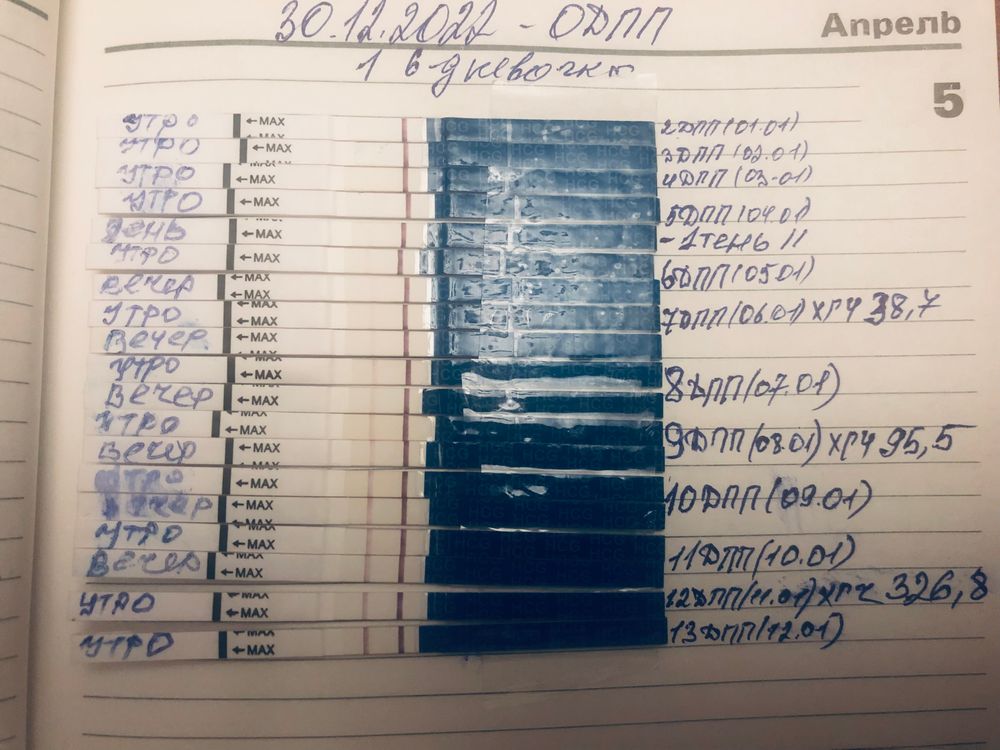 30.12.2022 - 0ДПП
Апрель
1 6дневочка
5
УТРО ←MAX HCG HCG HCG 2ДПП(01.01)
УТРО ←MAX HCG HCG HCG 3ДПП(02.01)
УТРО ←MAX 4ДПП(03.01)
УТРО ←MAX 5ДПП(04.01)
День ←MAX - 1 тень !!
УТРО ←MAX 6ДПП(05.01)
Вечер ←MAX
УТРО ←MAX 7ДПП(06.01) ХГЧ 38,7
Вечер ←MAX
УТРО ←MAX 8ДПП(07.01)
Вечер ←MAX
УТРО ←MAX 9ДПП(08.01) ХГЧ 95,5
Вечер ←MAX
УТРО ←MAX 10ДПП(09.01)
Вечер ←MAX
УТРО ←MAX 11ДПП(10.01)
Вечер ←MAX
УТРО ←MAX 12ДПП(11.01) ХГЧ 326,8
УТРО ←MAX 13ДПП(12.01)